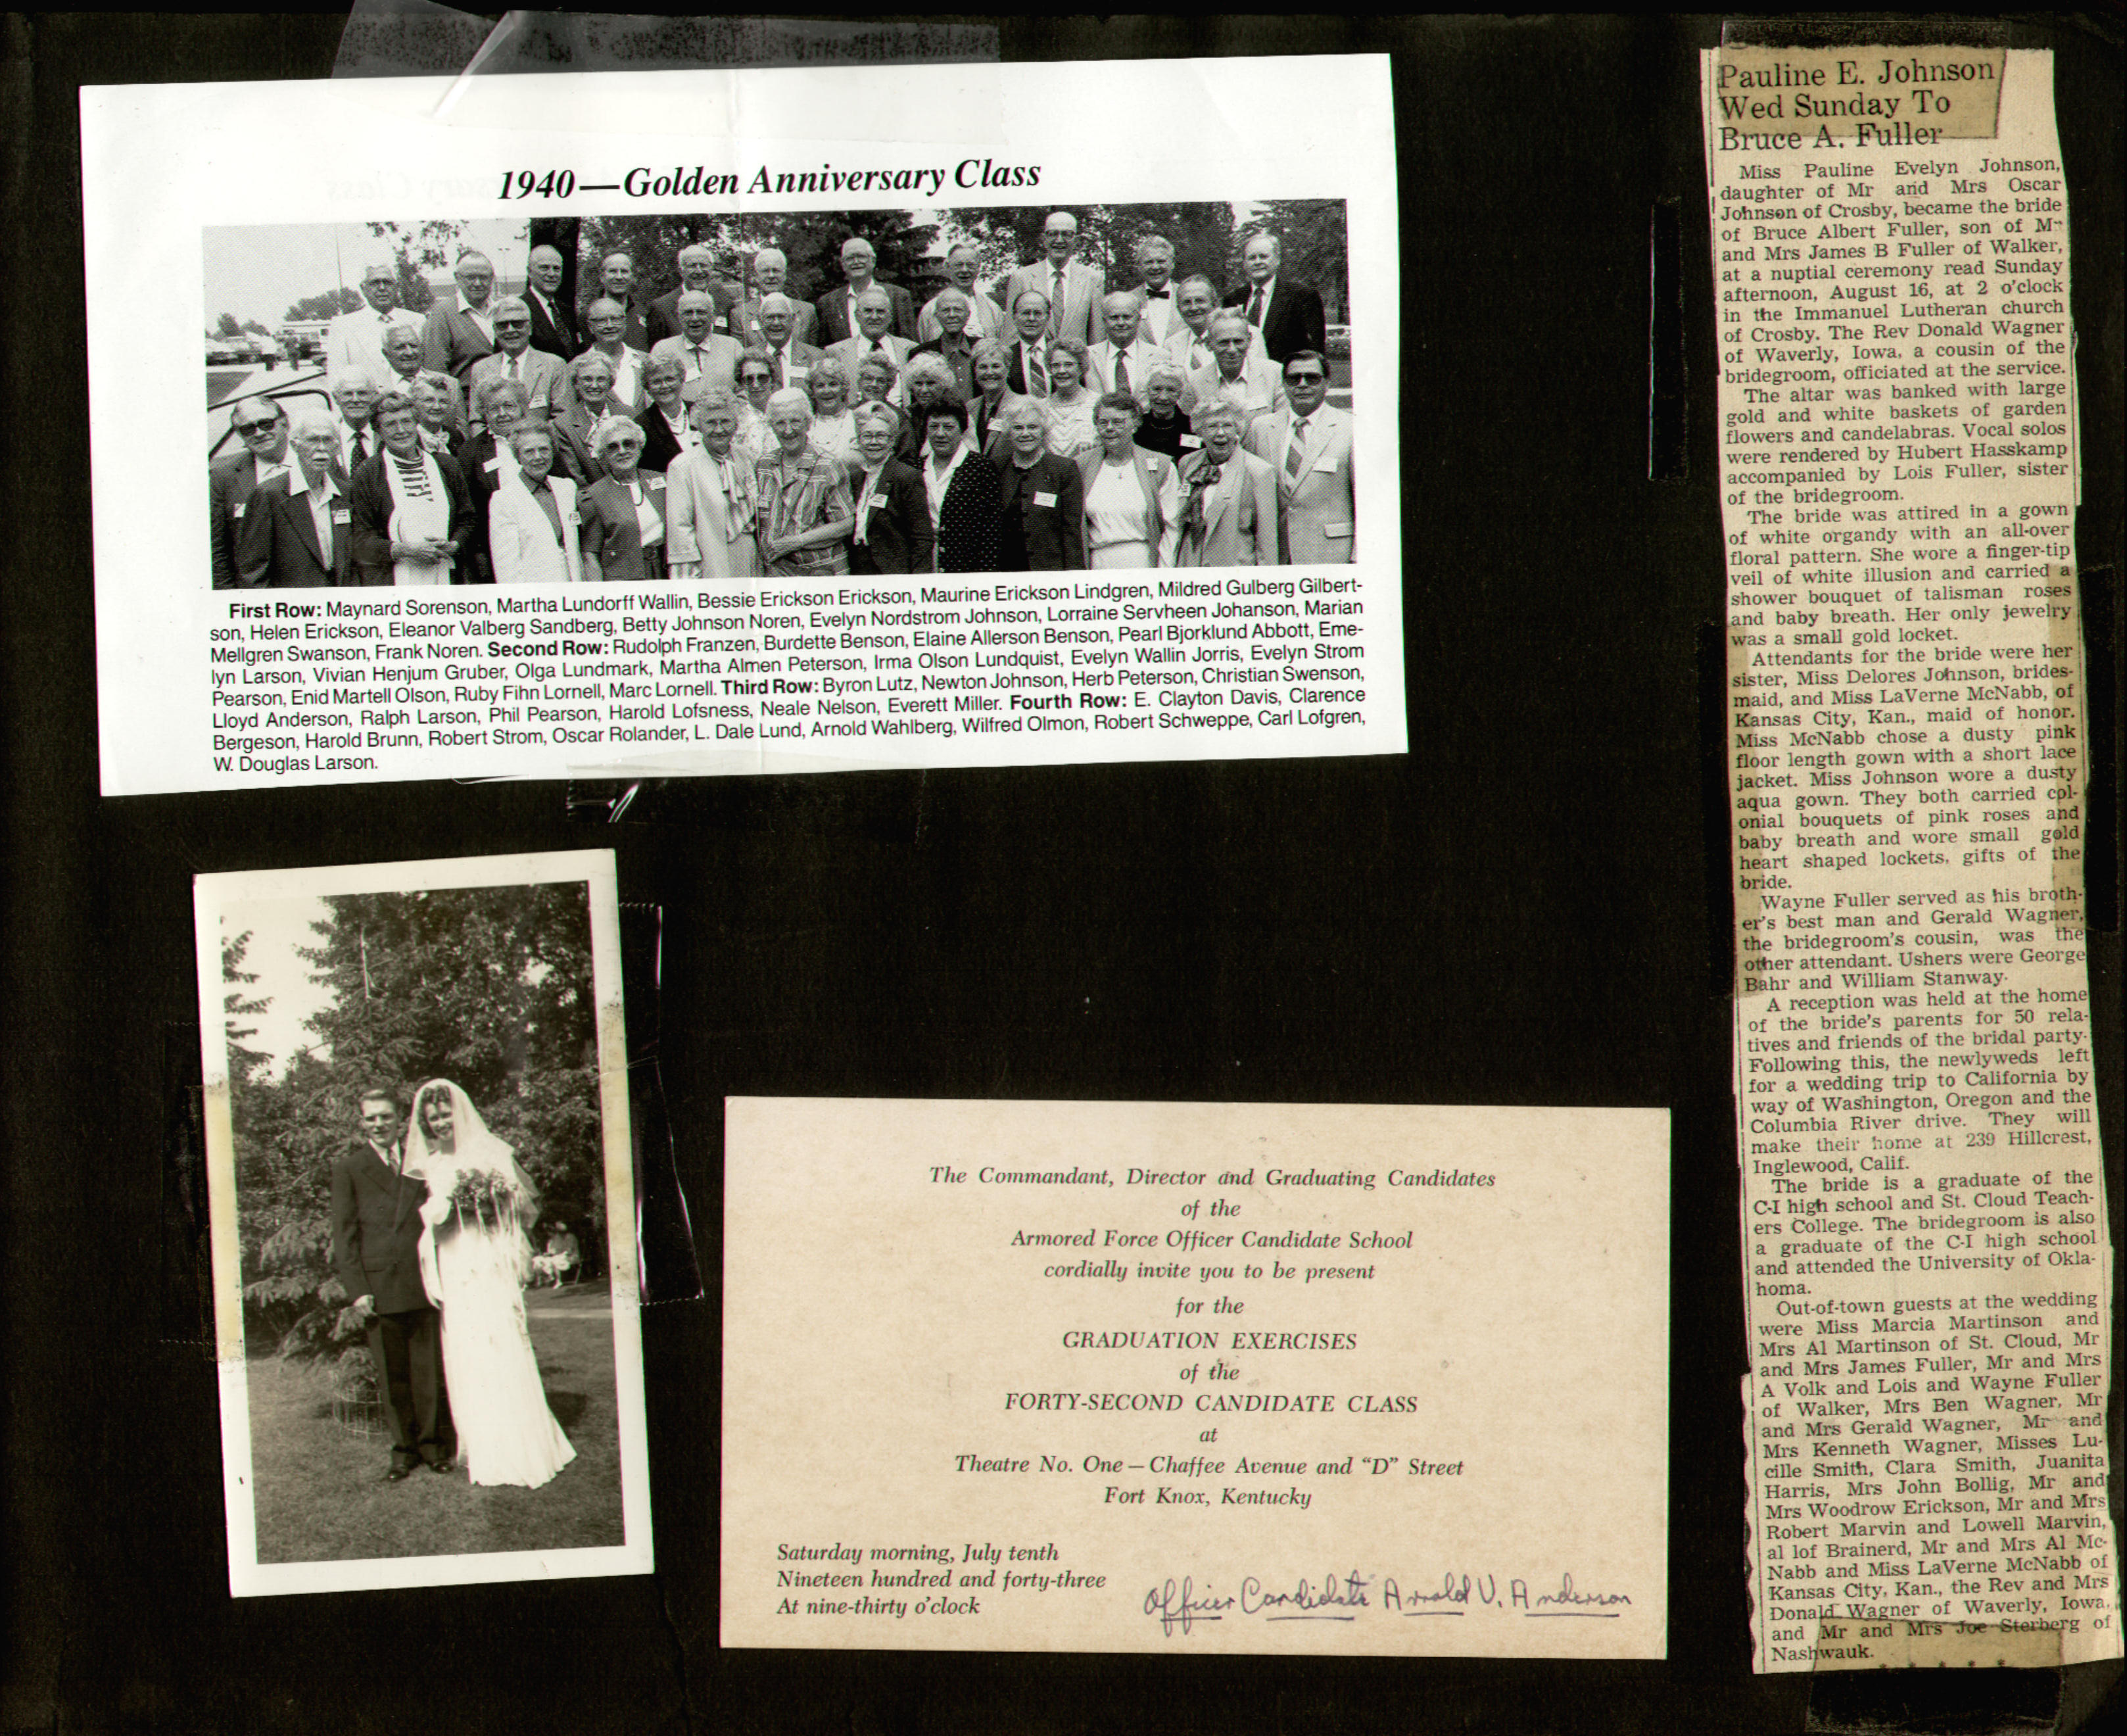 1940—Golden Anniversary Class
First Row: Maynard Sorenson, Martha Lundorff Wallin, Bessie Erickson Erickson, Maurine Erickson Lindgren, Mildred Gulberg Gilbert-
son, Helen Erickson, Eleanor Valberg Sandberg, Betty Johnson Noren, Evelyn Nordstrom Johnson, Lorraine Servheen Johanson, Marian
Mellgren Swanson, Frank Noren. Second Row: Rudolph Franzen, Burdette Benson, Elaine Allerson Benson, Pearl Bjorklund Abbott, Eme-
lyn Larson, Vivian Henjum Gruber, Olga Lundmark, Martha Almen Peterson, Irma Olson Lundquist, Evelyn Wallin Jorris, Evelyn Strom
Pearson, Enid Martell Olson, Ruby Fihn Lornell, Marc Lornell. Third Row: Byron Lutz, Newton Johnson, Herb Peterson, Christian Swenson,
Lloyd Anderson, Ralph Larson, Phil Pearson, Harold Lofsness, Neale Nelson, Everett Miller. Fourth Row: E. Clayton Davis, Clarence
Bergeson, Harold Brunn, Robert Strom, Oscar Rolander, L. Dale Lund, Arnold Wahlberg, Wilfred Olmon, Robert Schweppe, Carl Lofgren,
W. Douglas Larson.
The Commandant, Director and Graduating Candidates
of the
Armored Force Officer Candidate School
cordially invite you to be present
for the
GRADUATION EXERCISES
of the
FORTY-SECOND CANDIDATE CLASS
at
Theatre No. One — Chaffee Avenue and “D” Street
Fort Knox, Kentucky
Saturday morning, July tenth
Nineteen hundred and forty-three
At nine-thirty o'clock
Officer Candidate Arnold V. Anderson
Pauline E. Johnson
Wed Sunday To
Bruce A. Fuller
Miss Pauline Evelyn Johnson,
daughter of Mr and Mrs Oscar
Johnson of Crosby, became the bride
of Bruce Albert Fuller, son of Mr
and Mrs James B Fuller of Walker,
at a nuptial ceremony read Sunday
afternoon, August 16, at 2 o'clock
in the Immanuel Lutheran church
of Crosby. The Rev Donald Wagner
of Waverly, Iowa, a cousin of the
bridegroom, officiated at the service.
The altar was banked with large
gold and white baskets of garden
flowers and candelabras. Vocal solos
were rendered by Hubert Hasskamp
accompanied by Lois Fuller, sister
of the bridegroom.
The bride was attired in a gown
of white organdy with an all-over
floral pattern. She wore a finger-tip
veil of white illusion and carried a
shower bouquet of talisman roses
and baby breath. Her only jewelry
was a small gold locket.
Attendants for the bride were her
sister, Miss Delores Johnson, brides-
maid, and Miss LaVerne McNabb, of
Kansas City, Kan., maid of honor.
Miss McNabb chose a dusty pink
floor length gown with a short lace
jacket. Miss Johnson wore a dusty
aqua gown. They both carried col-
onial bouquets of pink roses and
baby breath and wore small gold
heart shaped lockets, gifts of the
bride.
Wayne Fuller served as his broth-
er's best man and Gerald Wagner,
the bridegroom's cousin, was the
other attendant. Ushers were George
Bahr and William Stanway.
A reception was held at the home
of the bride's parents for 50 rela-
tives and friends of the bridal party.
Following this, the newlyweds left
for a wedding trip to California by
way of Washington, Oregon and the
Columbia River drive. They will
make their home at 239 Hillcrest,
Inglewood, Calif.
The bride is a graduate of the
C-I high school and St. Cloud Teach-
ers College. The bridegroom is also
a graduate of the C-I high school
and attended the University of Okla-
homa.
Out-of-town guests at the wedding
were Miss Marcia Martinson and
Mrs Al Martinson of St. Cloud, Mr
and Mrs James Fuller, Mr and Mrs
A Volk and Lois and Wayne Fuller
of Walker, Mrs Ben Wagner, Mr
and Mrs Gerald Wagner, Mr and
Mrs Kenneth Wagner, Misses Lu-
cille Smith, Clara Smith, Juanita
Harris, Mrs John Bollig, Mr and
Mrs Woodrow Erickson, Mr and Mrs
Robert Marvin and Lowell Marvin,
al lof Brainerd, Mr and Mrs Al Mc-
Nabb and Miss LaVerne McNabb of
Kansas City, Kan., the Rev and Mrs
Donald Wagner of Waverly, Iowa,
and Mr and Mrs Joe Sterberg of
Nashwauk.